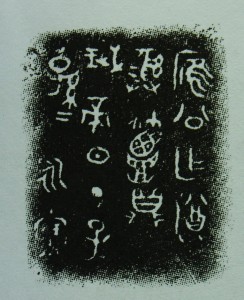 應公乍尊
彝簟鼎
珷帝日丁子＝
孫＝永寶